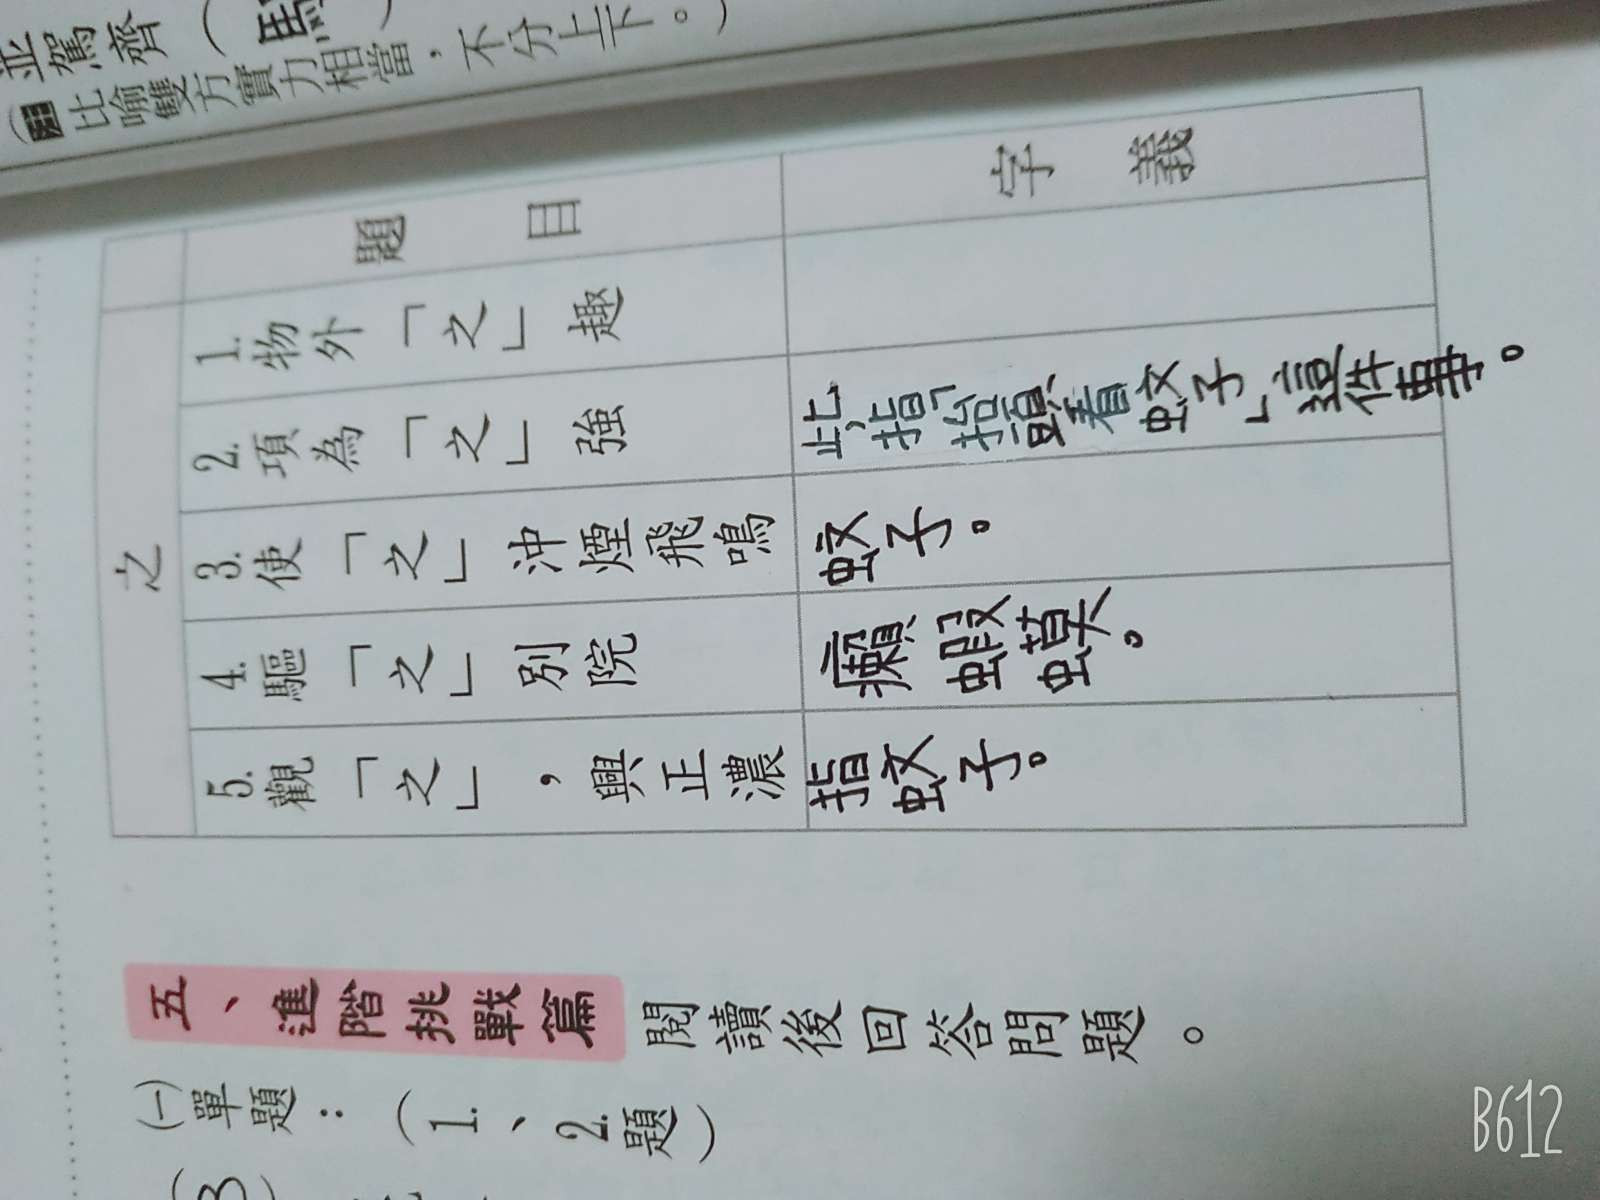 並駕齊（
比喻雙方實力相當，不分上下。）
題目
字義
之
1.物外「之」趣
2.項為「之」強
此指「抬頭看蚊子」這件事。
3.使「之」沖煙飛鳴
蚊子。
4.驅「之」別院
癩蝦蟆。
5.觀「之」，興正濃
指蚊子。
五、進階挑戰篇 閱讀後回答問題。
(一)單題：（1.、2.題）
B612